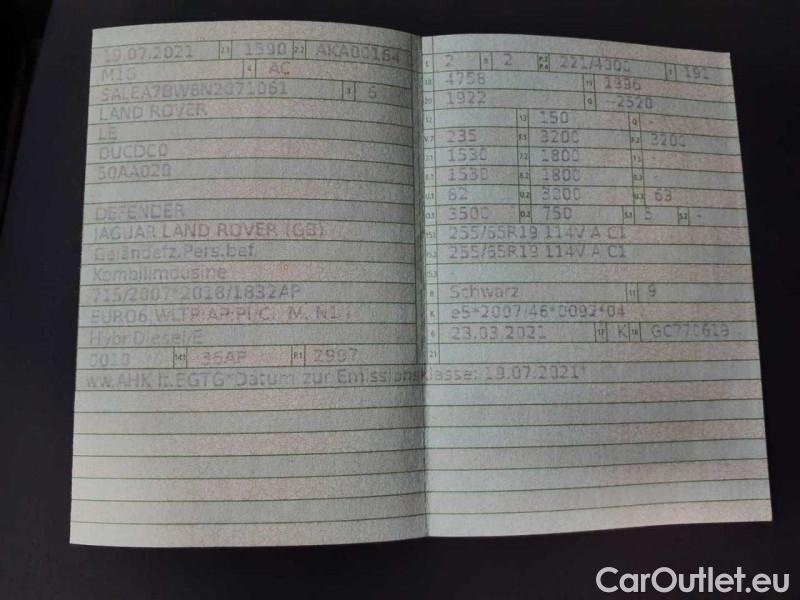 19.07.2021 2.1 1590 2.2 AKA00164
M1G 4 AC
SALEA7BW8N2071061 3 6
LAND ROVER
LE
DUCDC0
50AA020
DEFENDER
JAGUAR LAND ROVER (GB)
Geländefz.Pers.bef.
Kombilimousine
715/2007*2018/1832AP
EURO6
Hybr.Diesel/E
0010 14.1 36AP P.1 2997
ww.AHK lt.EGTG*Datum zur Emissionsklasse: 19.07.2021*
L 2 9 2 P.2 P.4 221/4000 T 191
18 4758 19 1996
20 1922 G --2520
12 - 13 150 Q -
V.7 235 F.1 3200 F.2 3200
7.1 1530 7.2 1800 -
8.1 1530 8.2 1800 -
U.1 62 U.2 3200 U.3 63
O.1 3500 O.2 750 S.1 5 S.2 -
15.1 255/65R19 114V A C1
15.2 255/65R19 114V A C1
15.3 -
R Schwarz 11 9
K e5*2007/46*0092*04
6 23.03.2021 17 K 16 GC770619
21
CarOutlet.eu